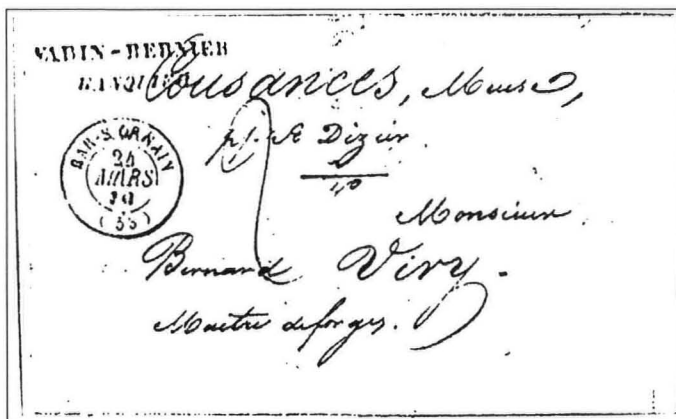 VARIN-BERNIER
BANQUIER
Cousances, Meuse,
p/. St Dizier
40
BAR-S-ORNAIN
24
MARS
(55)
2
Monsieur
Bernard Viry.
Maître deforges.